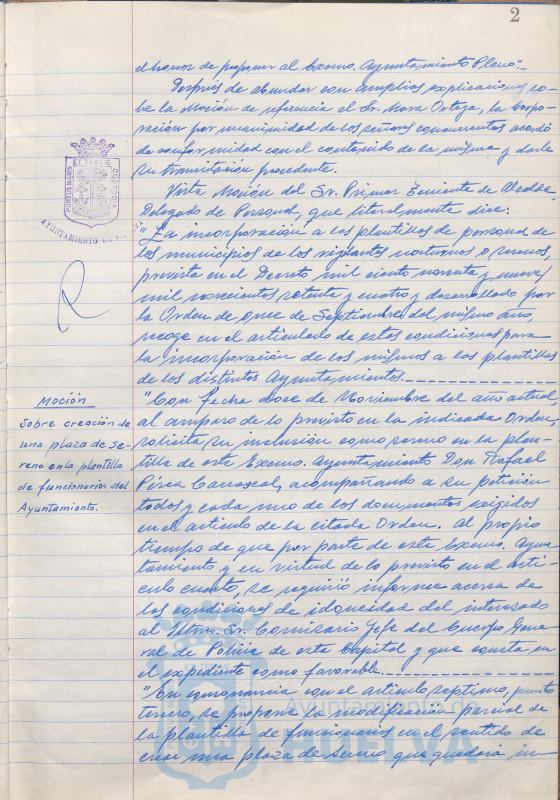 2
el honor de proponer al Excmo. Ayuntamiento Pleno".-
Después de abundar con amplias explicaciones so-
bre la Moción de referencia el Sr. Mora Ortega, la Corpo-
ración por unanimidad de los señores concurrentes acordó
de conformidad con el contenido de la misma y darle
su tramitación procedente.
Vista Moción del Sr. Primer Teniente de Alcalde,
Delegado de Personal, que literalmente dice:
"La incorporación a las plantillas de personal de
los municipios de los vigilantes nocturnos o serenos,
prevista en el Decreto, mil ciento noventa y nueve
mil novecientos setenta y cuatro y desarrollado por
la Orden de once de Septiembre del mismo año,
recoge en el articulado de estos condiciones para
la incorporación de los mismos a las plantillas
de los distintos Ayuntamientos.
"Con fecha doce de Noviembre del año actual,
al amparo de lo previsto en la indicada Orden,
solicita su inclusión como sereno en la plan-
tilla de este Excmo. Ayuntamiento Don Rafael
Pérez Carrascal, acompañando a su petición
todos y cada uno de los documentos exigidos
en el artículo de la citada Orden. Al propio
tiempo de que por parte de este Excmo. Ayun-
tamiento y en virtud de lo previsto en el artí-
culo cuarto, se requirió informe acerca de
las condiciones de idoneidad del interesado
al Iltmo. Sr. Comisario Jefe del Cuerpo Gene-
ral de Policía de esta Capital y que consta en
el expediente como favorable.
"En consonancia con el artículo séptimo, punto
tercero, se propone la modificación parcial de
la plantilla de funcionarios en el sentido de
crear una plaza de sereno que quedará in-
Moción
Sobre creación de
una plaza de Se-
reno en la plantilla
de funcionarios del
Ayuntamiento.
PORTUS MARIS
ET TERRAE
CUSTODIA
AYUNTAMIENTO DE HUELVA
Ayuntamiento de
HUELVA